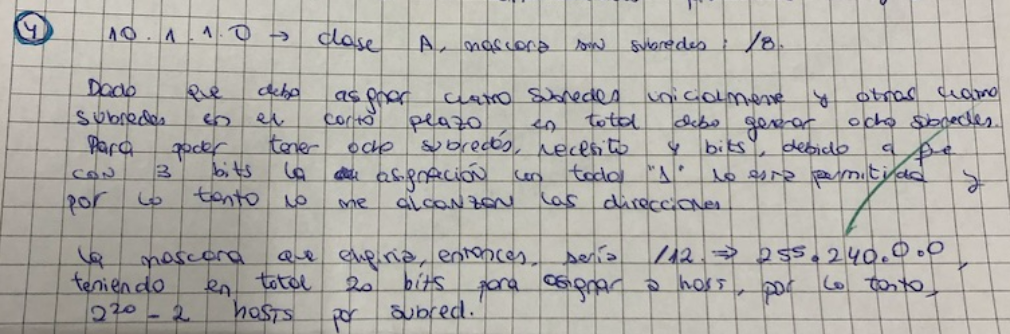 4
10.1.1.0 → clase A, máscara sin subredes: /8.
Dado que debo asignar cuatro subredes inicialmente y otras cuatro
subredes en el corto plazo, en total debo generar ocho subredes.
Para poder tener ocho subredes, necesito 4 bits, debido a que
con 3 bits la asignación con todos "1" no está permitida y
por lo tanto no me alcanzan las direcciones
La máscara que elegiría, entonces, sería /12. ⇒ 255.240.0.0,
teniendo en total 20 bits para asignar a host, por lo tanto,
2²⁰ - 2 hosts por subred.